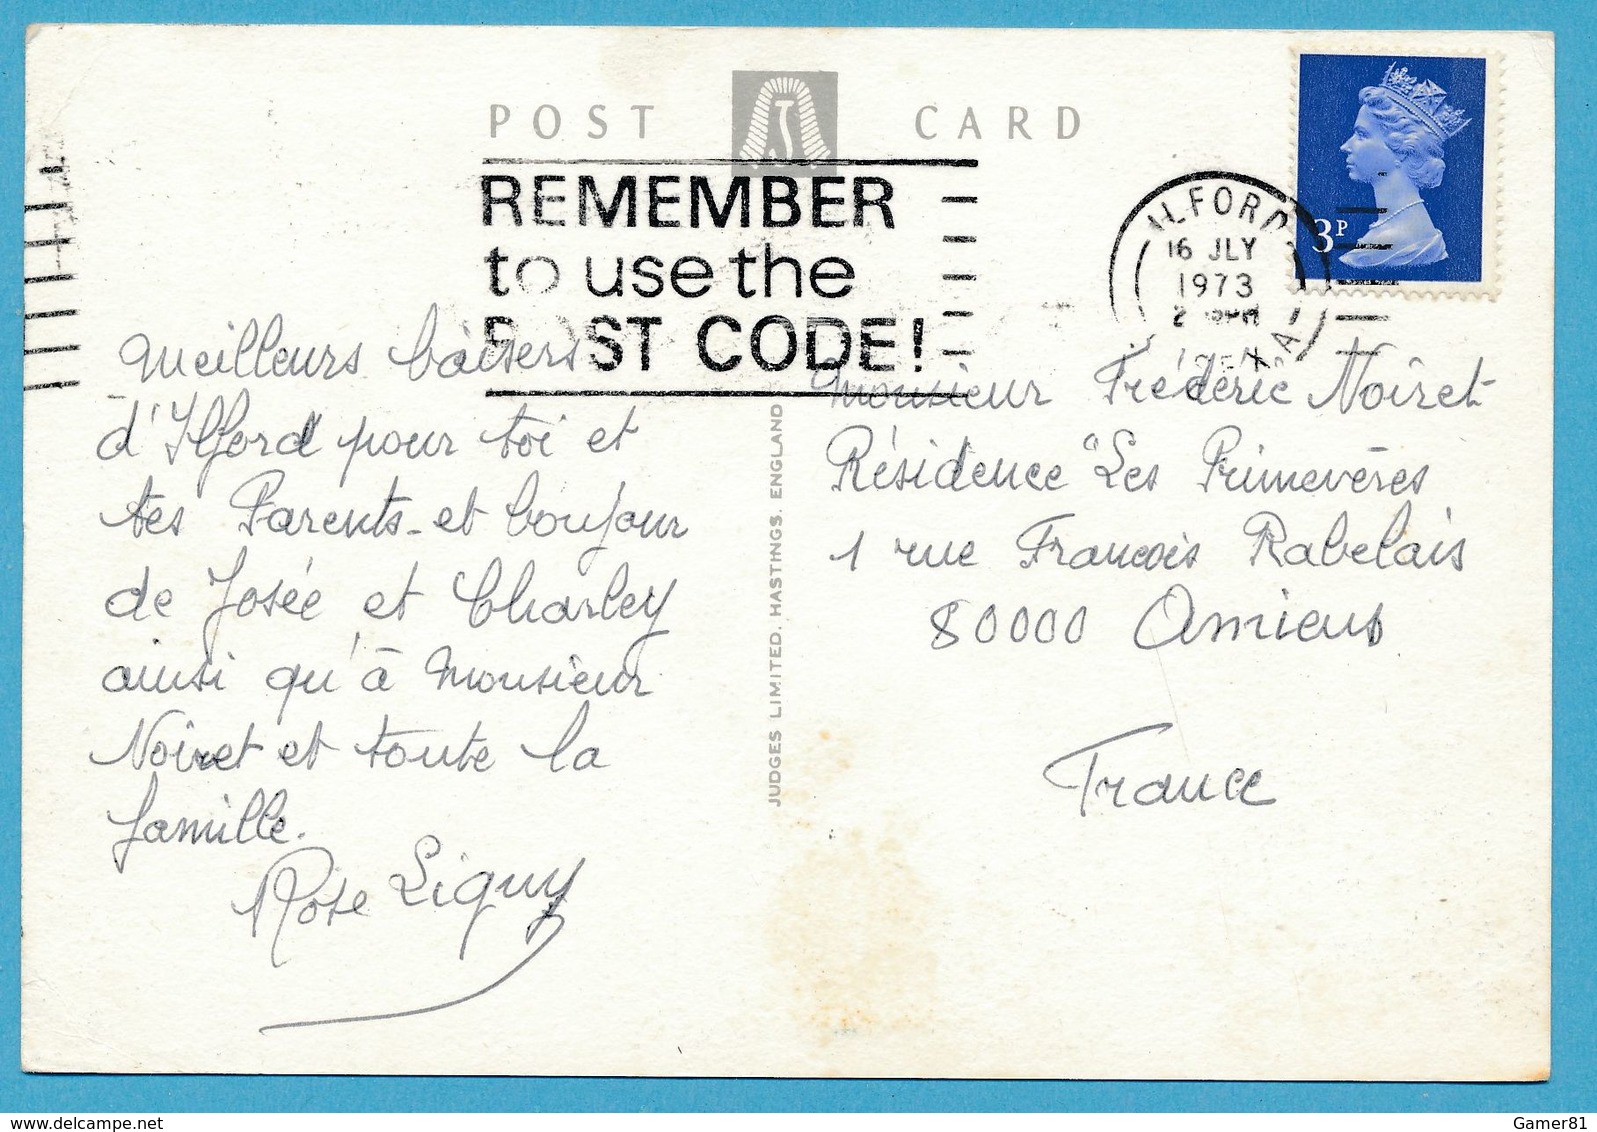 POST CARD
REMEMBER
to use the
POST CODE!
ILFORD
16 JLY
1973
3P
Meilleurs baisers
d'Ilford pour toi et
tes Parents - et boujour
de Josée et Charley
ainsi qu'à Monsieur
Noiret et toute la
famille.
Rose Liguy
JUDGES LIMITED. HASTINGS. ENGLAND
Monsieur Frédéric Noiret
Résidence "Les Primevères
1 rue François Rabelais
80000 Amiens
France
www.delcampe.net
Gamer81